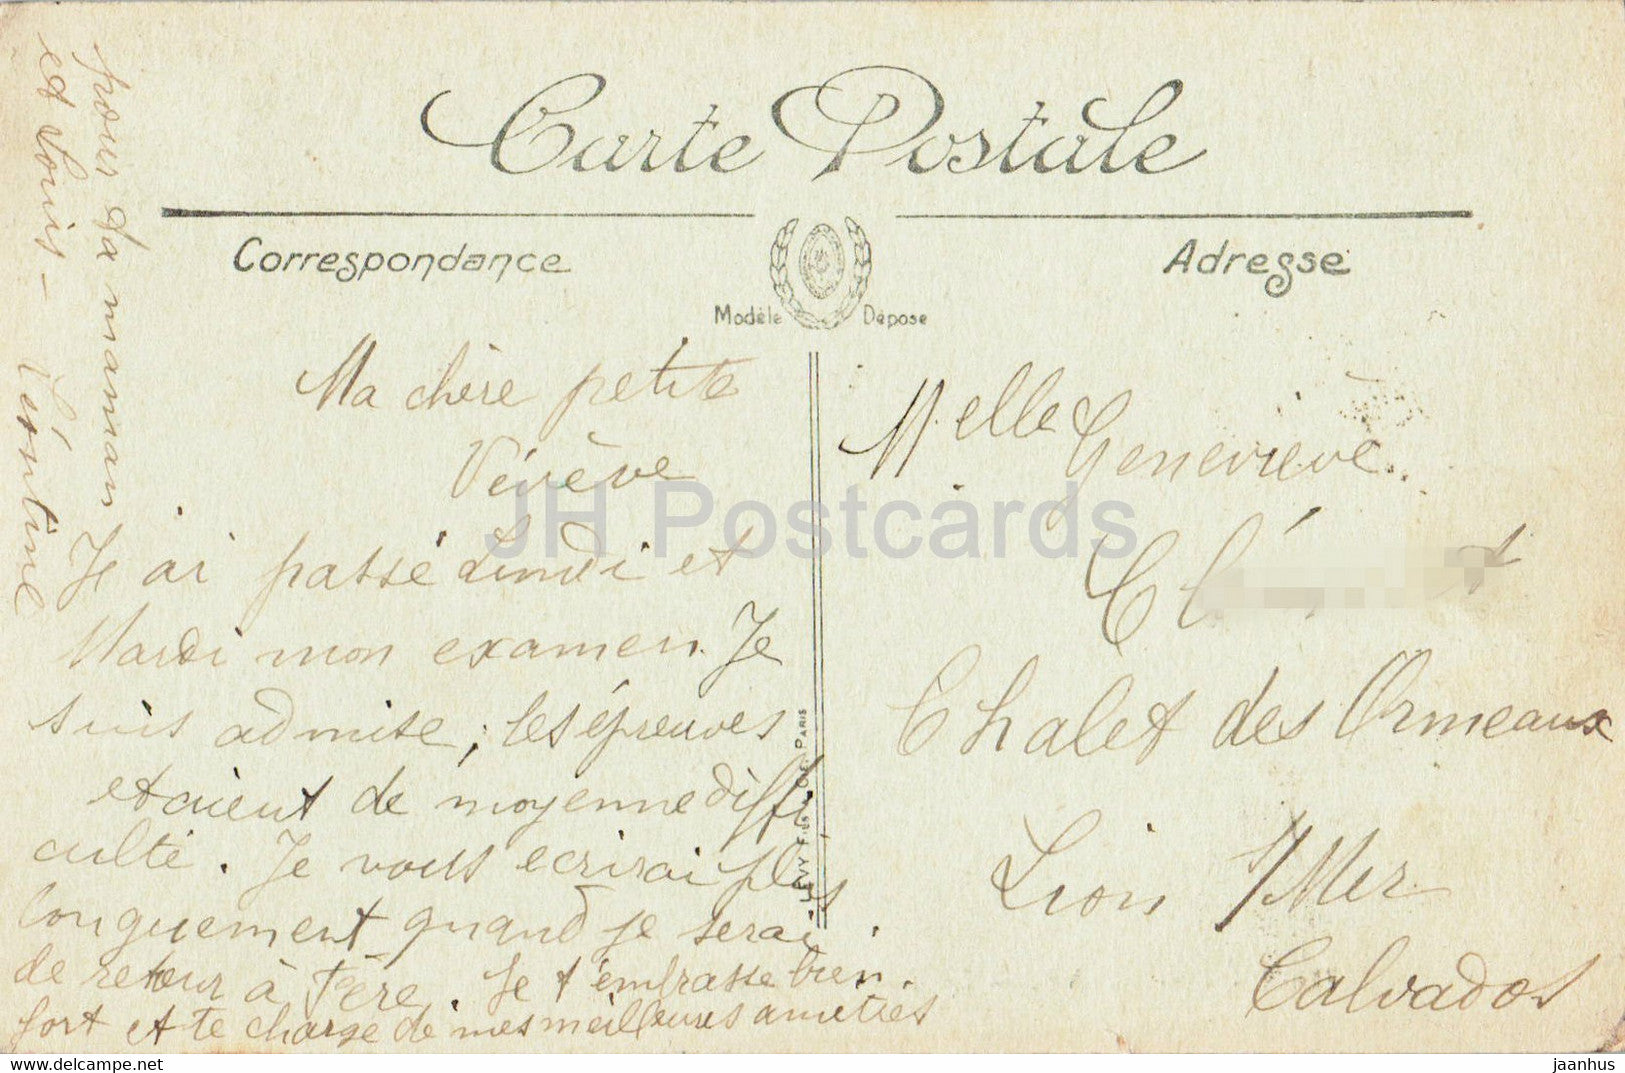 Carte Postale
Correspondance
Adresse
Modèle Déposé
Ma chère petite
Vévève
Je ai passé Lundi et
Mardi mon examen. Je
suis admise, les épreuves
etaient de moyenne diffi
culté. Je vous ecrirai plus
longuement quand je serai
de retour à Fère. Je t'embrasse bien
fort et te charge de mes meilleures amitiés
pour ta maman
et Louis - Léontine
LEVY FILS & Cie PARIS
Melle Geneviève
Chalet des Ormeaux
Lion s/Mer
Calvados
JH Postcards
delcampe.net
jaanhus